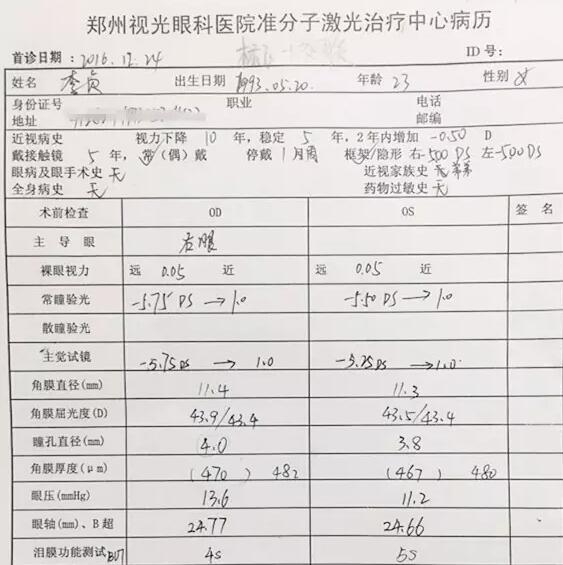 郑州视光眼科医院准分子激光治疗中心病历
首诊日期：2016.12.24 ID号：
姓名 李贞 出生日期 1993.05.20. 年龄 23 性别 女
身份证号 职业 电话
地址 邮编
近视病史 视力下降 10 年，稳定 5 年，2年内增加 -0.50 D
戴接触镜 5 年，常（偶）戴 停戴 1月 框架/隐形 右-500 DS 左-500 DS
眼病及眼手术史 无 近视家族史 弟弟
全身病史 无 药物过敏史 无
术前检查 OD OS 签名
主导眼 右眼
裸眼视力 远 0.05 近 远 0.05 近
常瞳验光 -5.75 DS →1.0 -5.50 DS →1.0
散瞳验光
主觉试镜 -5.75 DS → 1.0 -5.25 DS →1.0
角膜直径(mm) 11.4 11.3
角膜屈光度(D) 43.9/43.4 43.5/43.4
瞳孔直径(mm) 4.0 3.8
角膜厚度(μm) (470) 482 (467) 480
眼压(mmHg) 13.6 11.2
眼轴(mm)、B超 24.77 24.66
泪膜功能测试 BUT 4s 5s